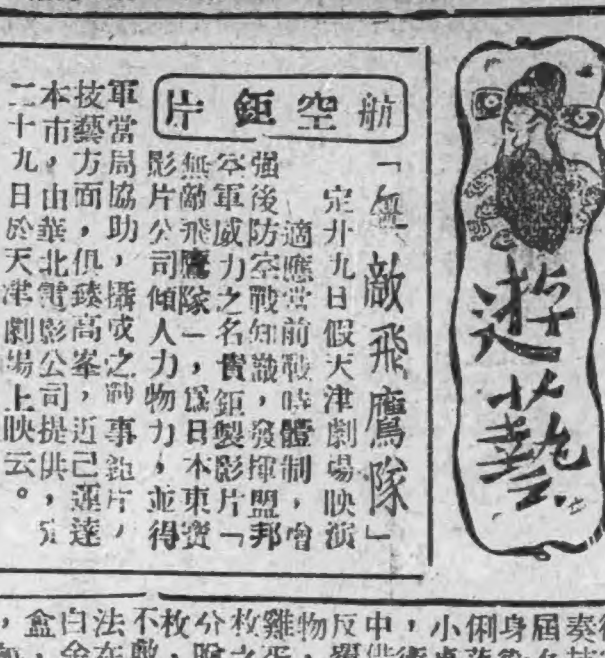 遊藝
航空鉅片
「無敵飛鷹隊」
定廿九日假天津劇場映演
適應當前戰時體制，增
强後防空戰知識，發揮盟邦
空軍威力之名貴鉅製影片「
無敵飛鷹隊」，爲日本東寶
影片公司傾人力物力，並得
軍當局協助，攝成之戰事鉅片，
技藝方面，俱臻高峯，近已運達
本市，由華北電影公司提供，定
二十九日於天津劇場上映云。
奏
屆
身
俐
小，
中
反
物
雞
枚
分
枚
不
法
白
盒，